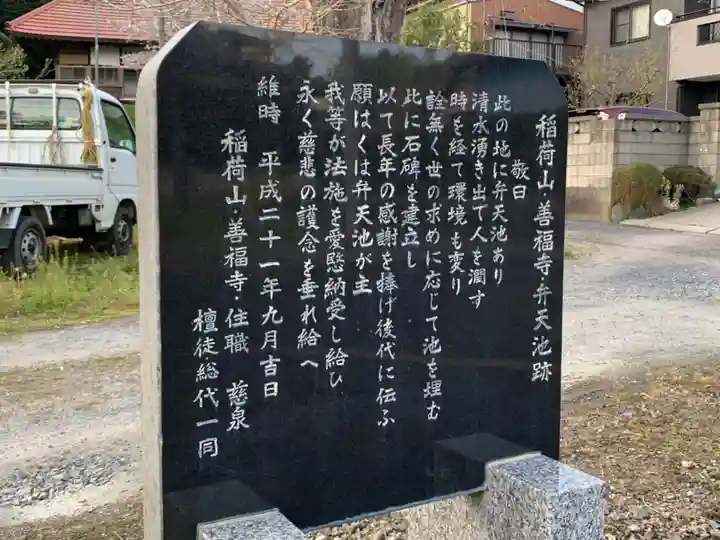 稲荷山善福寺弁天池跡
敬曰
此の地に弁天池あり
清水湧き出て人を潤す
時を経て環境も変り
詮無く世の求めに応じて池を埋む
此に石碑を建立し
以て長年の感謝を捧げ後代に伝ふ
願はくは弁天池が主
我等が法施を愛愍納受し給ひ
永く慈悲の護念を垂れ給へ
維時 平成二十一年九月吉日
稲荷山・善福寺・住職 慈泉
檀徒総代一同